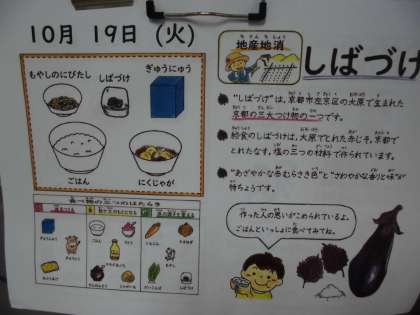 10月 19日 (火)
もやしのにびたし
しばづけ
ぎゅうにゅう
ごはん
にくじゃが
食べ物の三つのはたらき
地産地消
しばづけ
"しばづけ"は、京都市左京区の大原で生まれた
京都の三大つけ物の一つです。
給食のしばづけは、大原でとれた赤じそ、京都で
とれたなす、塩の三つの材料で作られています。
"あざやかな赤むらさき色"と"さわやかな香りと味"が
特ちょうです。
作った人の思いがこめられているよ。
ごはんといっしょに食べてみてね。